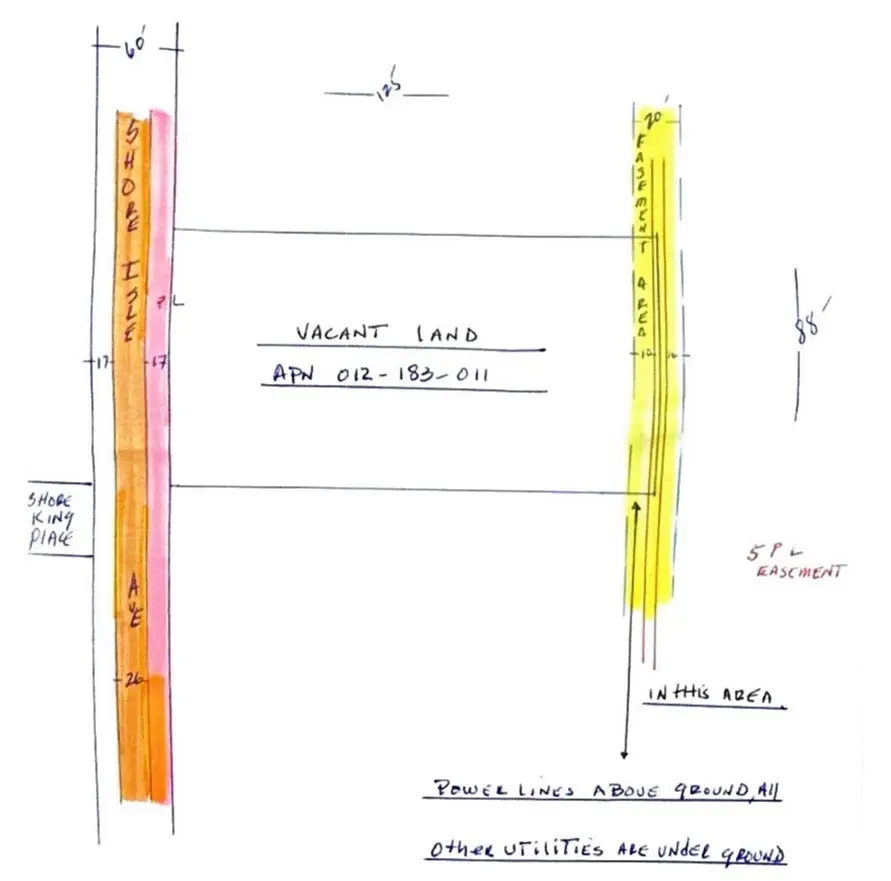 60'
125'
20'
SHORE ISLE AVE
EASEMENT AREA
P L
VACANT LAND
APN 012-183-011
88'
17
17
10
10
SHORE
KING
PLACE
5 P L
EASEMENT
26
IN tHIS AREA.
POWER LINES ABOVE GROUND, All
Other UTILITIES ARE UNDER GROUND